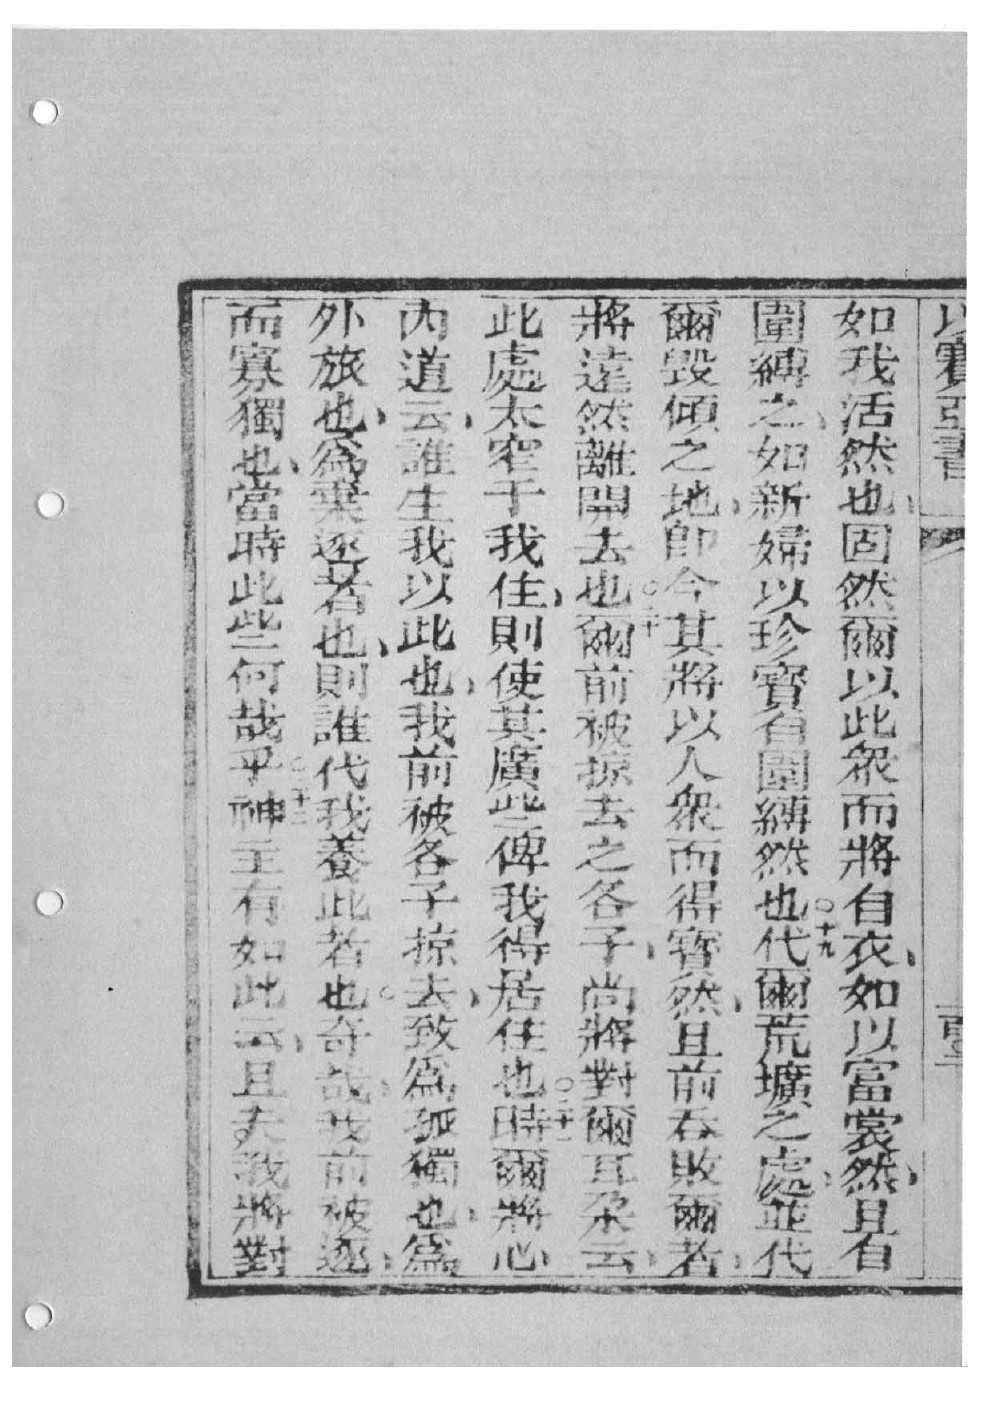 以賽亞書
如我活然也、固然爾以此衆而將自衣、如以富裳然、且自
圍縛之、如新婦以珍寶自圍縛然也○十九代爾荒壙之處、並代
爾毀傾之地、卽今其將以人衆而得窄然、且前吞敗爾者、
將遠然離開去也○二十爾前被掠去之各子、尚將對爾耳朶云、
此處太窄于我住、則使其廣些俾我得居住也○二十一時爾將心
內道云、誰生我以此也、我前被各子掠去、致爲孤獨也、爲
外旅也、爲棄逐者也、則誰代我養此者也。奇哉、我前被逐、
而寡獨也、當時此些何哉乎○二十二神主有如此云、且夫我將對